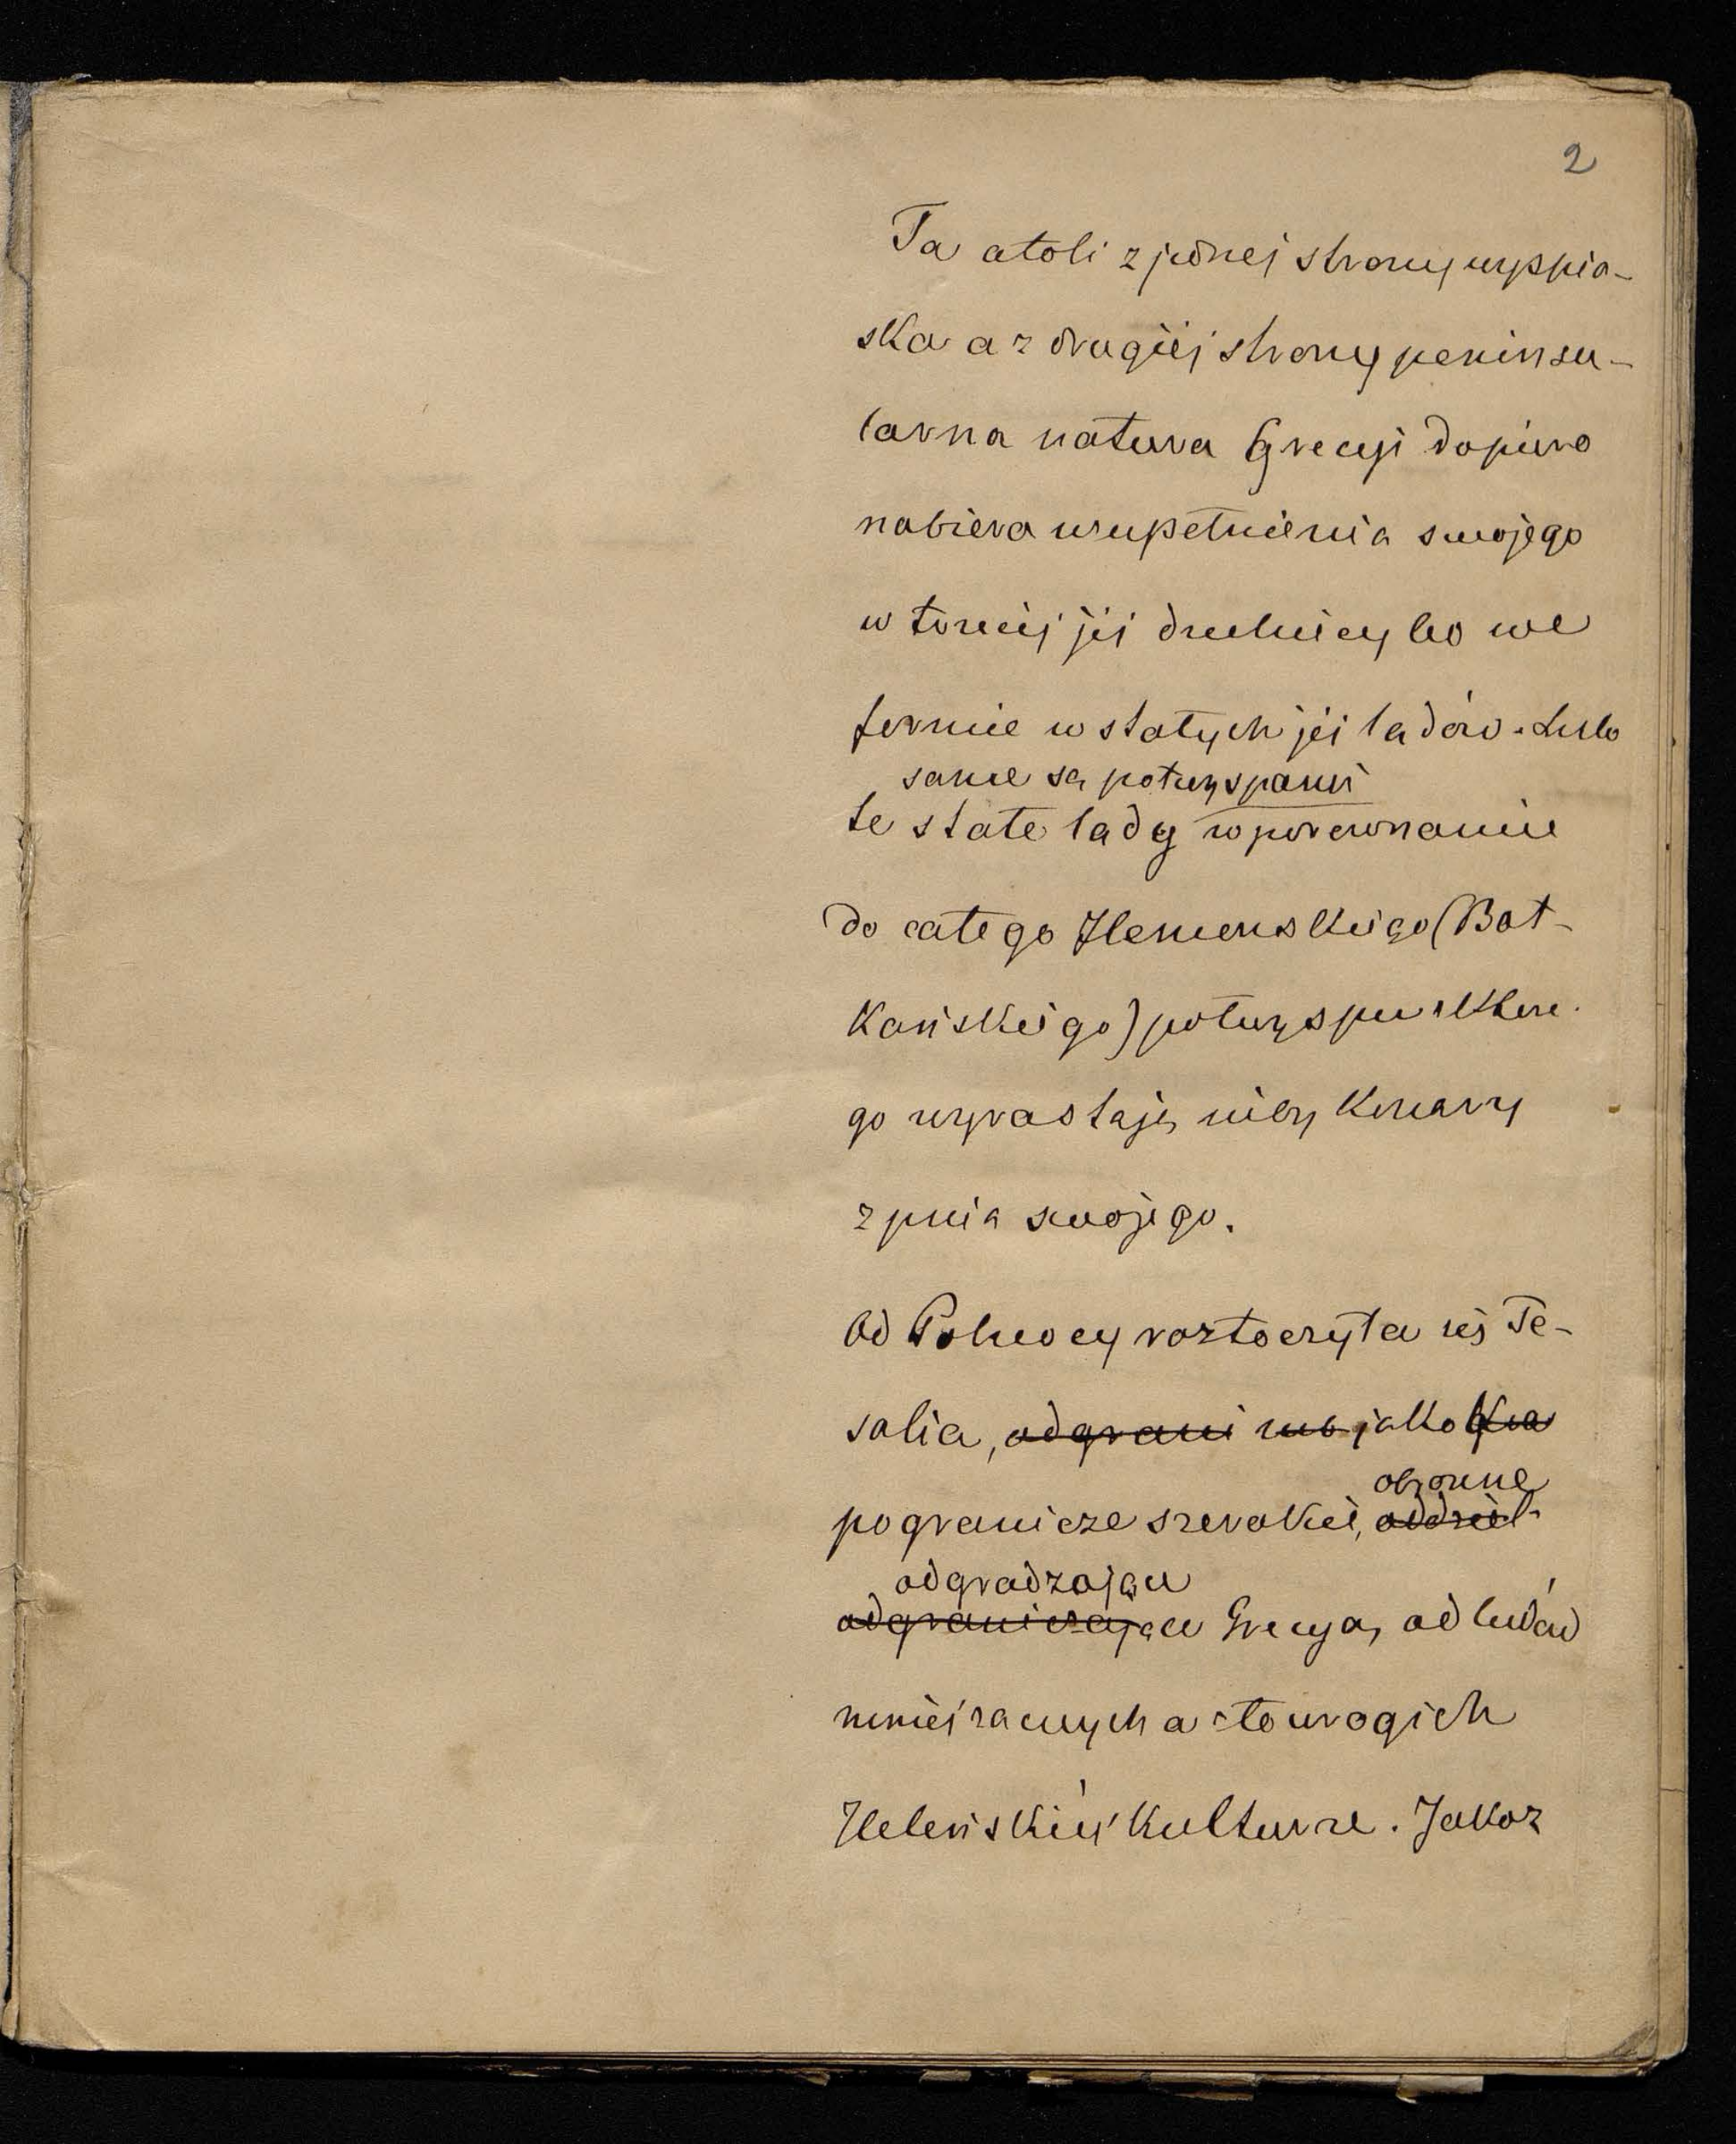 2
Ta atoli z jednej strony wyspia-
ska a z drugiéj strony peninsu-
larna natura Grecyi dopiero
nabiera uzupełnienia swojego
w trzeciéj jéj dzielnicy bo we
formie w stałych jéj lądów. Lubo
same są półwyspami
te stałe lądy w porównanie
do całego Hemenskiego (Bał-
kańskiego) półwyspu z które-
go wyrastają niby konary
z pnia swojego.
Od Północy roztoczyła się Te-
salia, odgrani jako
pogranicze szerokie,
obronne
oddziel-
odgradzające
odgraniczające Grecyą, od ludów
mniéj zacnych a to wrogich
Heleńskiéj kulturze. Jakoż